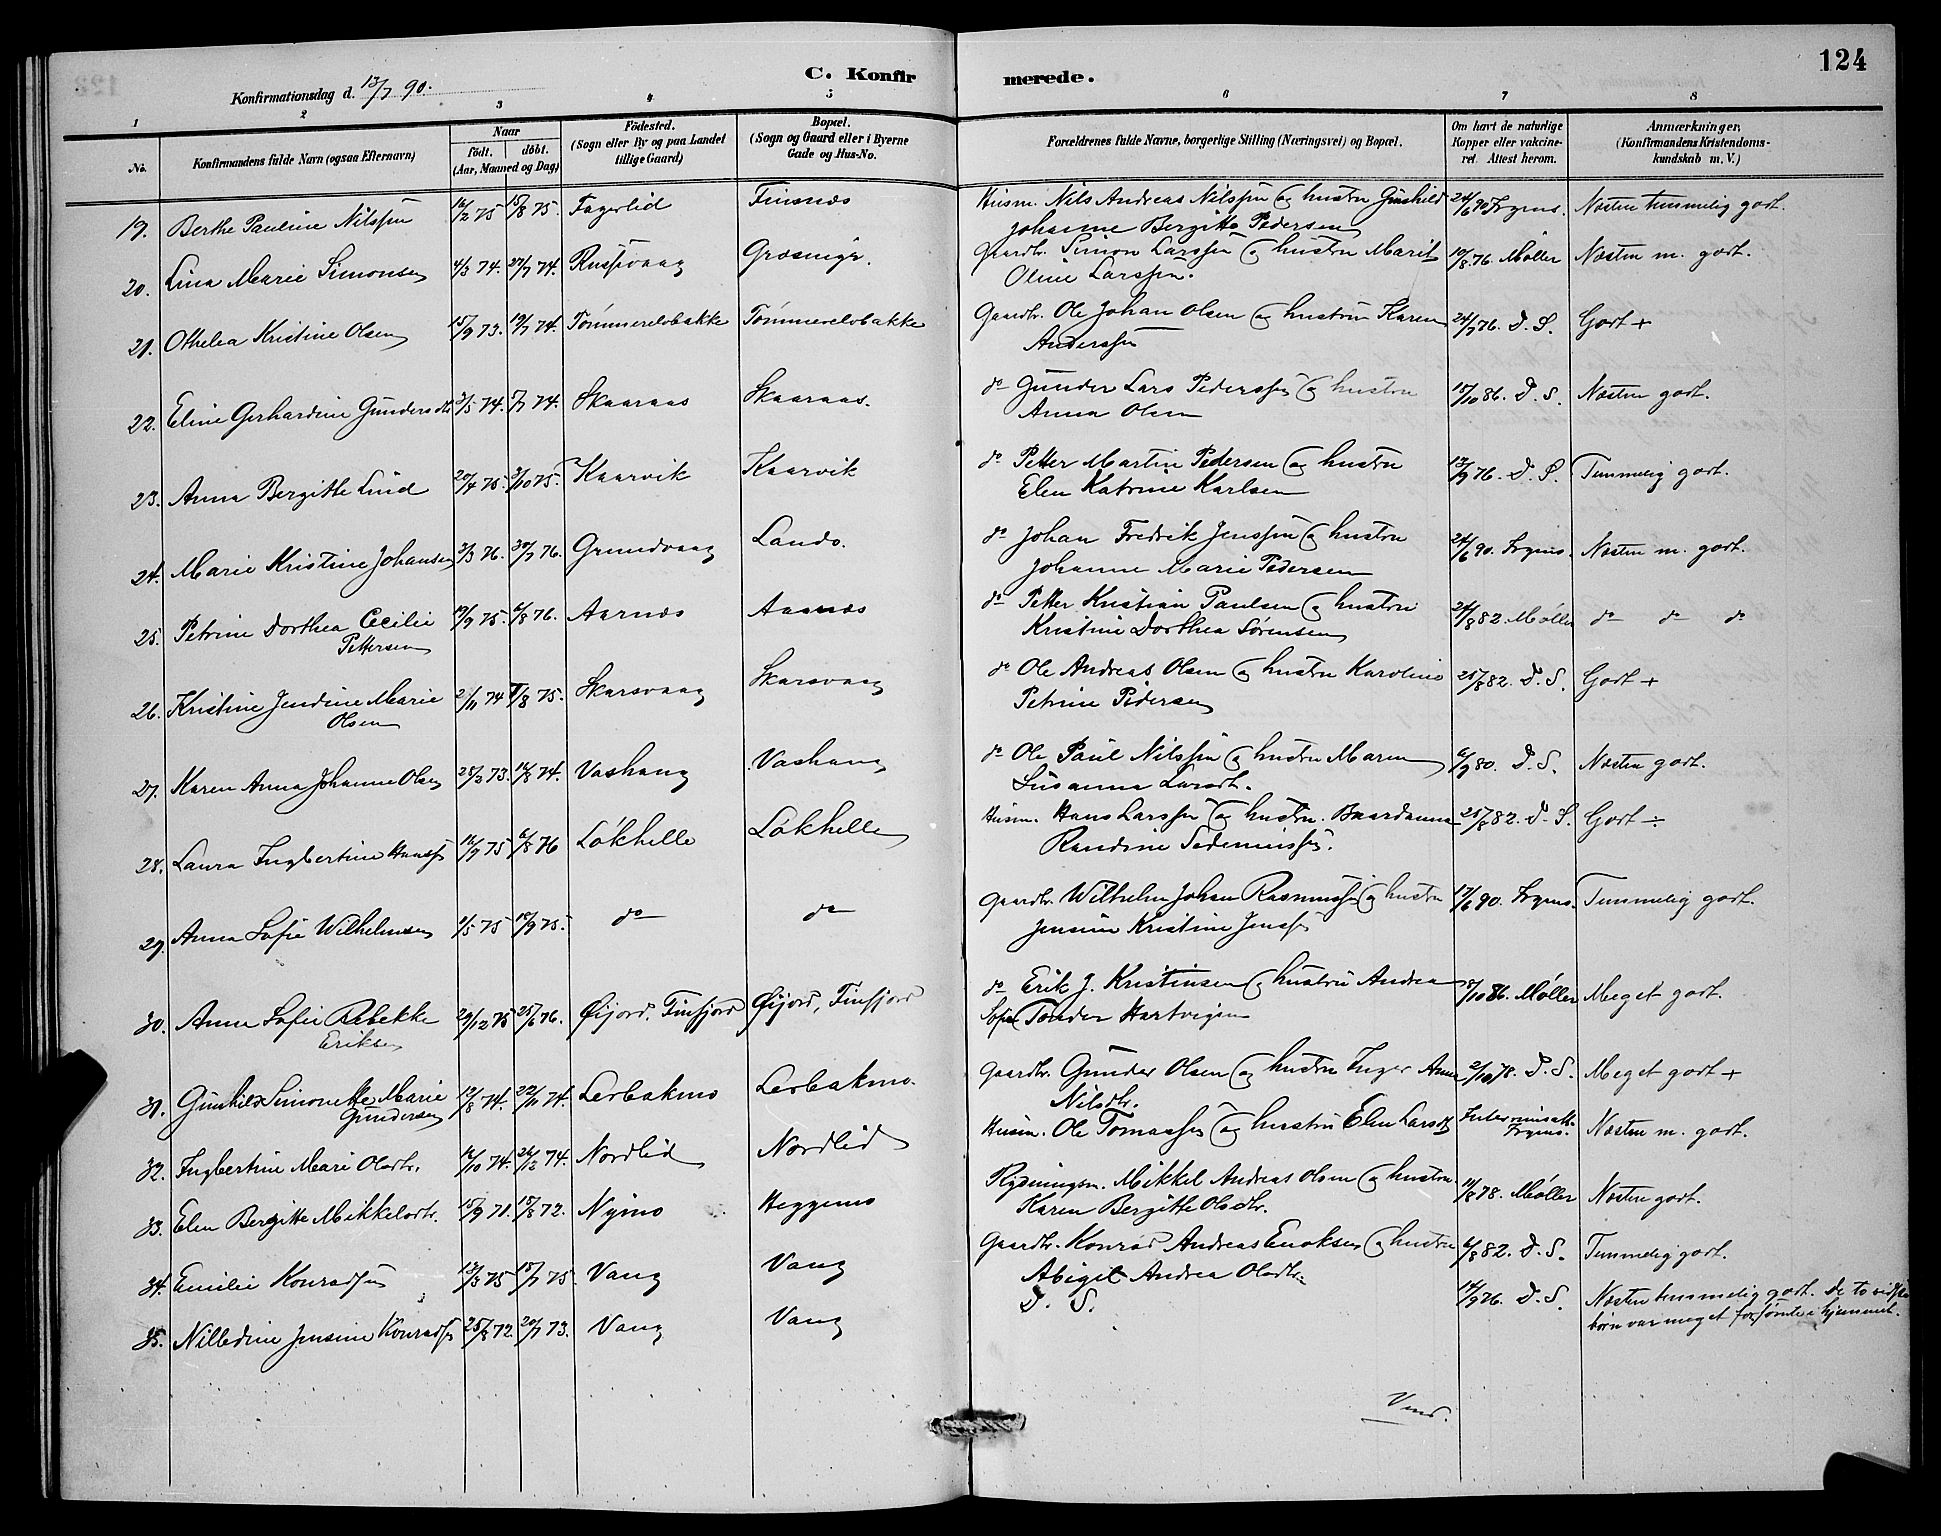 124
C. Konfirmerede.
Konfirmationsdag d. 13/7 90.
1 2 3 4 5 6 7 8
No. Konfirmandens fulde Navn (ogsaa Efternavn) Naar født. døbt. (Aar, Maaned og Dag) Fødested. (Sogn eller By og paa Landet tillige Gaard) Bopæl. (Sogn og Gaard eller i Byerne Gade og Hus-No. Forældrenes fulde Navne, borgerlige Stilling (Næringsvei) og Bopæl. Om havt de naturlige Kopper eller vakcineret. Attest herom. Anmærkninger, (Konfirmandens Kristendomskundskab m. V.)
19. Berthe Pauline Nilssen 16/2 75 15/8 75. Fagerlid Finsnæs Husm. Nils Andreas Nilssen og hustru Gunhild 24/6 90 Frgens. Næsten temmelig godt.
Johanne Bergitte Pedersen
20. Lina Marie Simonsen 4/3 74. 27/7 74. Russevaag Græsmyr. Gaardbr. Simon Larssen og hustru Marit 10/8 76. Møller Næsten m. godt.
Oline Larssen.
21. Othelea Kristine Olsen 15/9 73. 19/7 74. Tømmerelvbakke Tømmerelvbakke Gaardbr. Ole Johan Olsen og hustru Karen 24/7 76. D. S. Godt +
Anderssen
22. Eline Gerhardine Gundersdtr 3/5 74. 5/7 74. Skaaraas Skaaraas. do Gunder Lars Pederssen og hustru 15/10 86. D. S. Næsten godt.
Anna Olsen
23. Anna Bergitte Lind 20/4 75. 3/10 75. Kaarvik Kaarvik do Petter Martin Pedersen og hustru 13/9 76. D. S. Temmelig godt.
Elen Katrine Karlsen
24. Marie Kristine Johansen 3/3 76. 30/7 76. Grundvaag Lando. do Johan Fredrik Jenssen og hustru 24/6 90. Frgens. Næsten m. godt.
Johanne Marie Pedersen
25. Petrine Dorthea Cecilie 19/9 75. 6/8 76. Aarnæs Aarnæs do Petter Kristian Paulsen og hustru 24/8 82. Møller do do do
Pettersen Kristine Dorthea Sørensen
26. Kristine Jendine Marie 2/11 74 8/8 75. Skarsvaag Skarsvaag do Ole Andreas Olsen og hustru Karoline 25/8 82. D. S. Godt +
Olsen Petrine Pedersen
27. Karen Anna Johanne Olsen 25/3 73. 16/8 74. Vashaug Vashaug do Ole Paul Nilssen og hustru Maren 6/9 80. D. S. Næsten godt.
Susanna Larsdt.
28. Laura Ingbertine Hanssen 16/7 75 6/8 76 Løkhelle Løkhelle Husm. Hans Larssen og hustru Baardanna 25/8 82. D. S. Godt ÷
Randine
29. Anna Sofie Wilhelmsen 1/5 75 10/9 75. do do Gaardbr. Wilhelm Johan Rasmussen og hustru 17/6 90. Frgens. Temmelig godt.
Jensine Kristine Jenssen
30. Anna Sofie Rebekke 29/12 75 25/6 76. Øijord, Finfjord Øijord, Finfjord do Erik J. Kristinsen og hustru Andrea 8/10 86. Møller Meget godt.
Eriksen Tønder Hartvigsen
31. Gunhild Simonette Marie 12/8 74. 22/11 74. Lerbakmo Lerbakmo. Gaardbr. Gunder Olsen og hustru Inger Anna 2/10 78. D. S. Meget godt +
Gundersen Nilsdtr.
32. Ingbertine Marie Olsdtr. 16/10 74. 26/12 74. Nordlid Nordlid Husm. Ole Tomassen og hustru Elen Larsdtr Frgens. Næsten m. godt.
33. Elen Bergitte Mikkelsdtr. 15/9 71. 18/8 72. Nymo Heggemo Rydningsm. Mikkel Andreas Olsen og hustru 11/8 78. Møller Næsten godt.
Karen Bergitte Olsdtr.
34. Emilie Konradsen 13/3 75 18/7 75. Vang Vang Gaardbr. Konrad Andreas Enoksen og hustru 6/8 82. D. S. Temmelig godt.
Abigel Andrea Olsdtr.
35. Nilledine Jensine Konradsen 25/8 72. 20/7 73. Vang Vang D. S. 14/9 76. D. S. Næsten temmelig godt. De to sidste
børn var meget forsømte i hjemmet.
Vend.